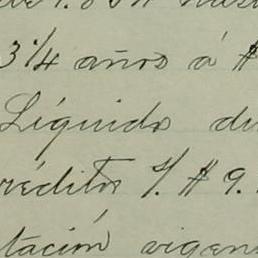 3 1/4 años á $
Líquido de
réditos s/. $ 9.
tación vigen